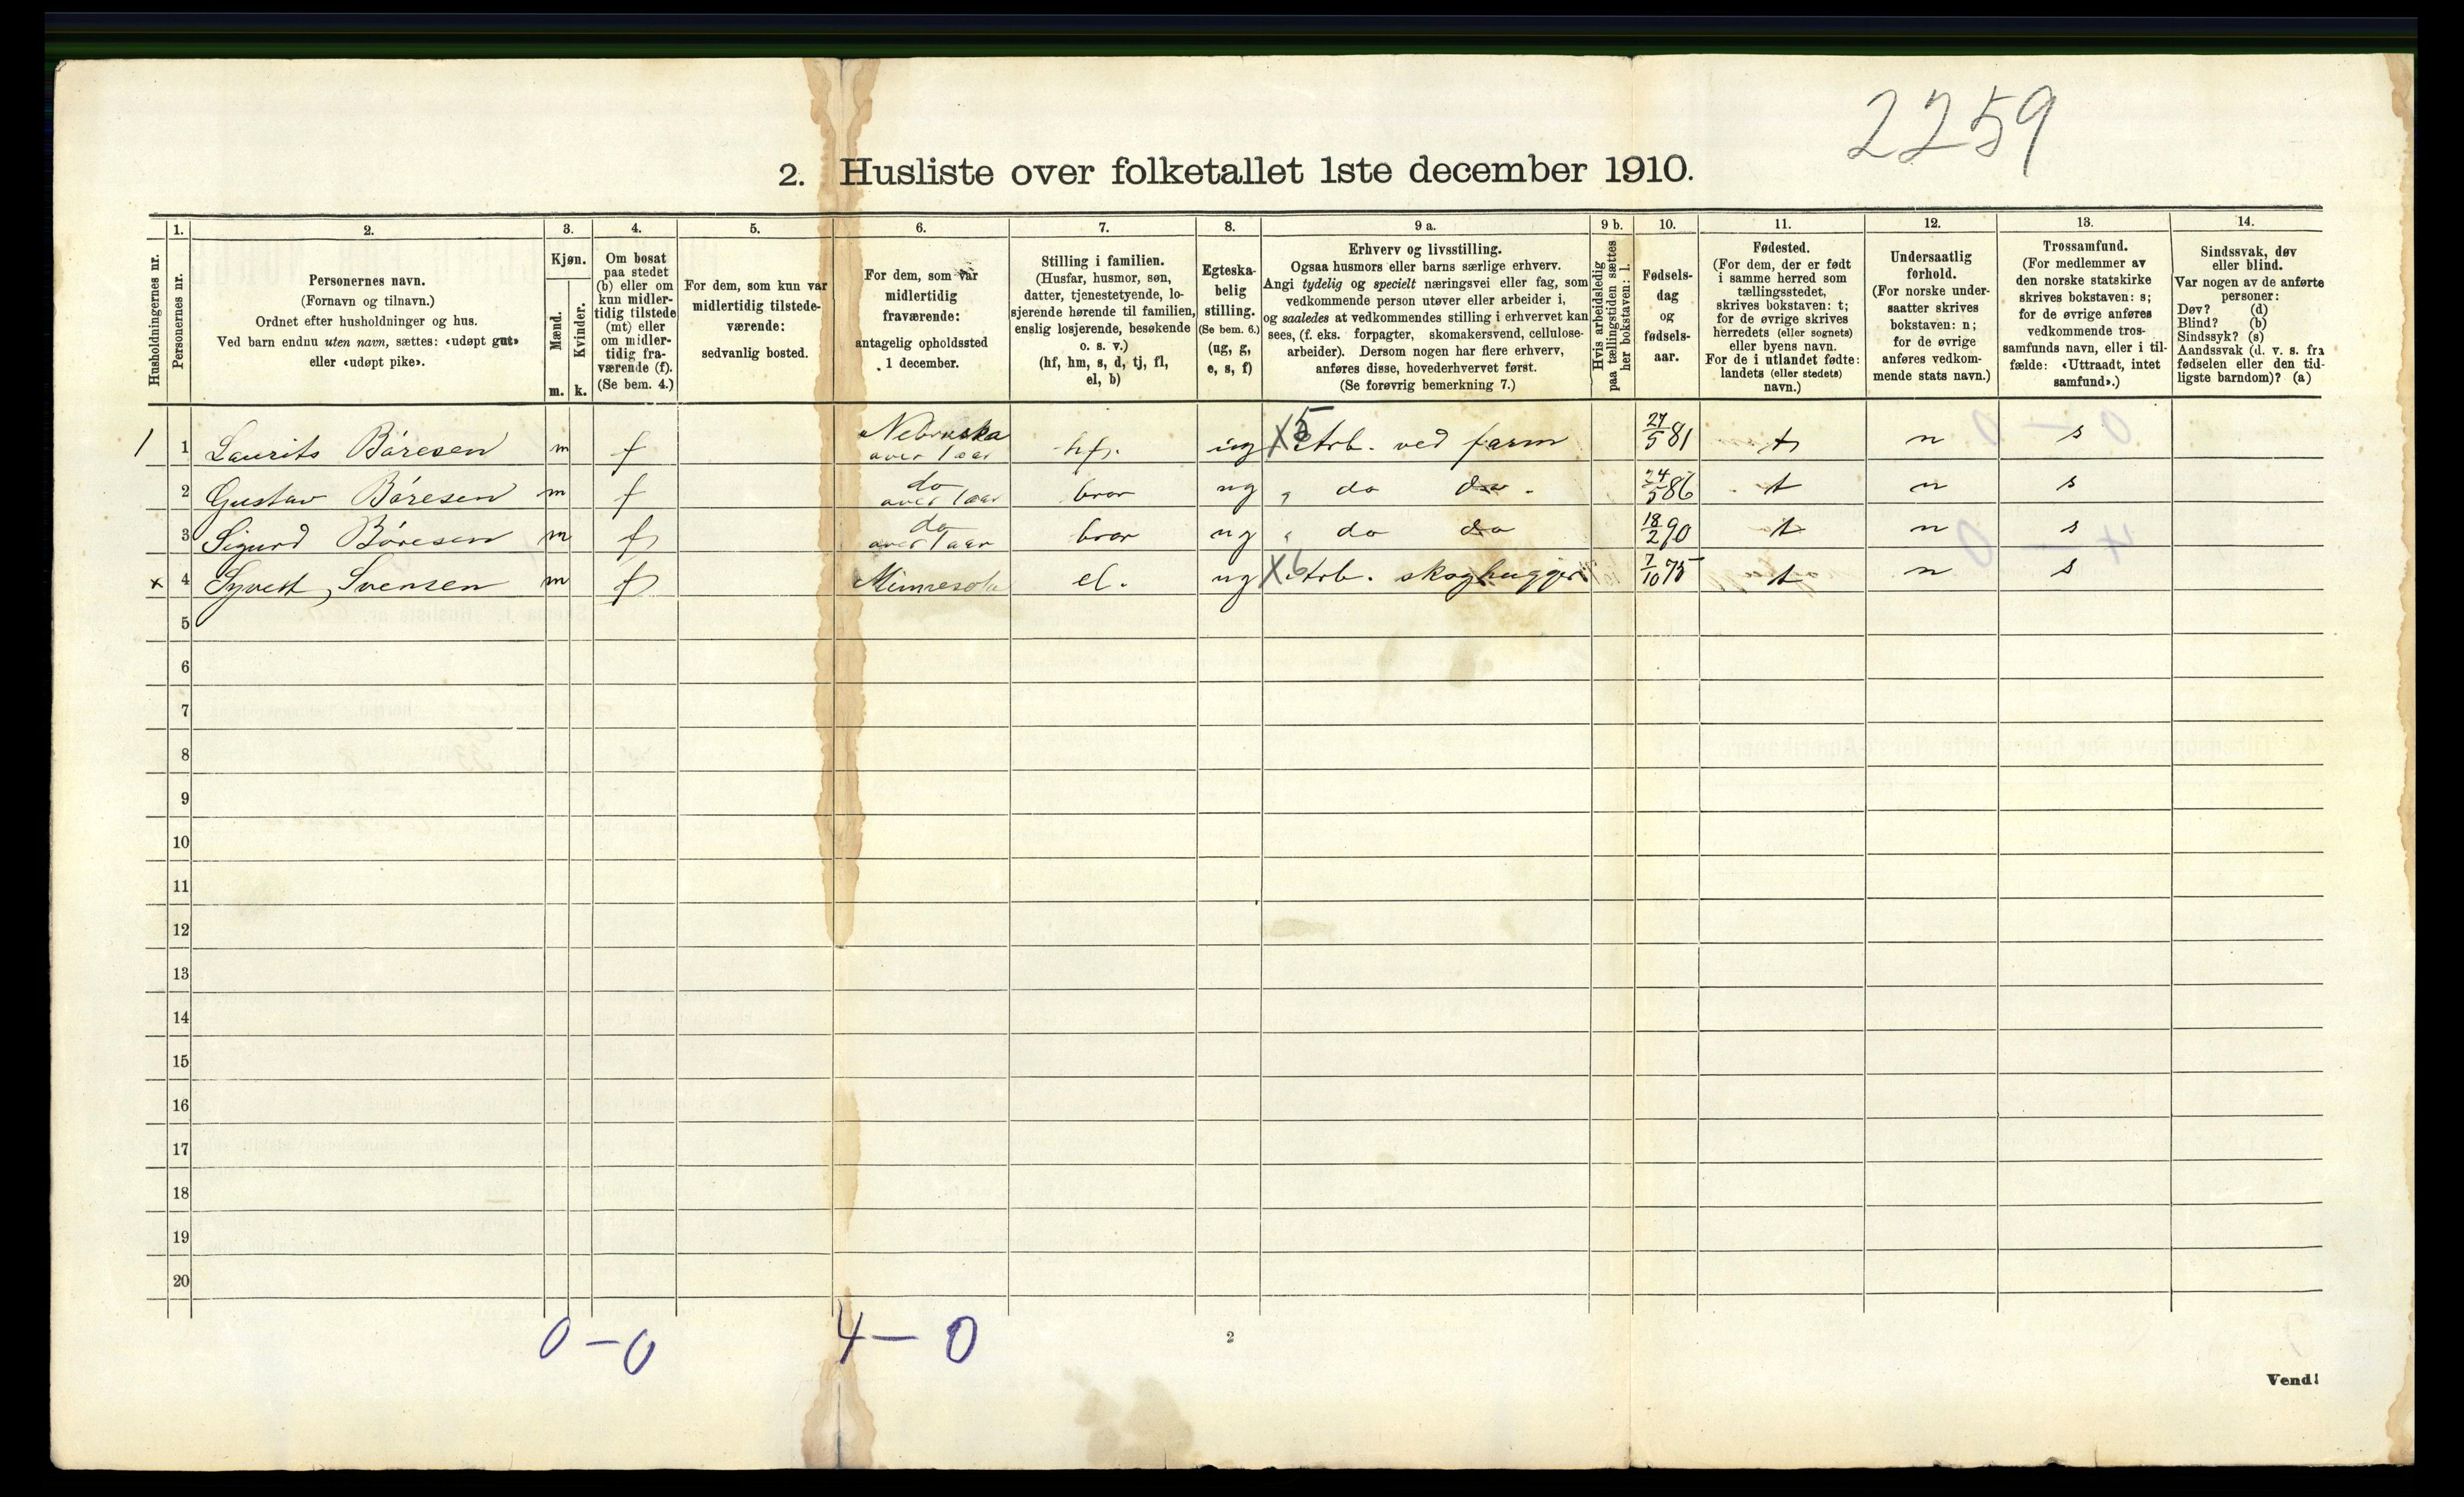 2259
2. Husliste over folketallet 1ste december 1910.
1. 2. 3. 4. 5. 6. 7. 8. 9 a. 9 b. 10. 11. 12. 13. 14.
Husholdningernes nr.
Personernes nr.
Personernes navn.
(Fornavn og tilnavn.)
Ordnet efter husholdninger og hus.
Ved barn endnu uten navn, sættes: «udøpt gut»
eller «udøpt pike».
Kjøn.
Mænd.
Kvinder.
m. k.
Om bosat
paa stedet
(b) eller om
kun midler-
tidig tilstede
(mt) eller
om midler-
tidig fra-
værende (f).
(Se bem. 4.)
For dem, som kun var
midlertidig tilstede-
værende:
sedvanlig bosted.
For dem, som var
midlertidig
fraværende:
antagelig opholdssted
1 december.
Stilling i familien.
(Husfar, husmor, søn,
datter, tjenestetyende, lo-
sjerende hørende til familien,
enslig losjerende, besøkende
o. s. v.)
(hf, hm, s, d, tj, fl,
el, b)
Egteska-
belig
stilling.
(Se bem. 6.)
(ug, g,
e, s, f)
Erhverv og livsstilling.
Ogsaa husmors eller barns særlige erhverv.
Angi tydelig og specielt næringsvei eller fag, som
vedkommende person utøver eller arbeider i,
og saaledes at vedkommendes stilling i erhvervet kan
sees, (f. eks. forpagter, skomakersvend, cellulose-
arbeider). Dersom nogen har flere erhverv,
anføres disse, hovederhvervet først.
(Se forøvrig bemerkning 7.)
Hvis arbeidsledig
paa tællingstiden sættes
her bokstaven: l.
Fødsels-
dag
og
fødsels-
aar.
Fødested.
(For dem, der er født
i samme herred som
tællingsstedet,
skrives bokstaven: t;
for de øvrige skrives
herredets (eller sognets)
eller byens navn.
For de i utlandet fødte:
landets (eller stedets)
navn.)
Undersaatlig
forhold.
(For norske under-
saatter skrives
bokstaven: n;
for de øvrige
anføres vedkom-
mende stats navn.)
Trossamfund.
(For medlemmer av
den norske statskirke
skrives bokstaven: s;
for de øvrige anføres
vedkommende tros-
samfunds navn, eller i til-
fælde: «Uttraadt, intet
samfund».)
Sindssvak, døv
eller blind.
Var nogen av de anførte
personer:
Døv? (d)
Blind? (b)
Sindssyk? (s)
Aandssvak (d. v. s. fra
fødselen eller den tid-
ligste barndom)? (a)
1 1 Laurits Båresen m f Nebraska over 1 aar hf. ug X 5 Arb. ved farm 27/5 81 t n s
2 Gustav Båresen m f do over 1 aar bror ug " do do. 24/5 86 t n s
3 Sigurd Båresen m f do over 1 aar bror ug " do do 18/2 90 t n s
x 4 Syvert Svensen m f Minnesota el. ug X 6 Arb. skoghugger 7/10 75 t n s
5
6
7
8
9
10
11
12
13
14
15
16
17
18
19
20
0 — 0 4 — 0
2
Vend!